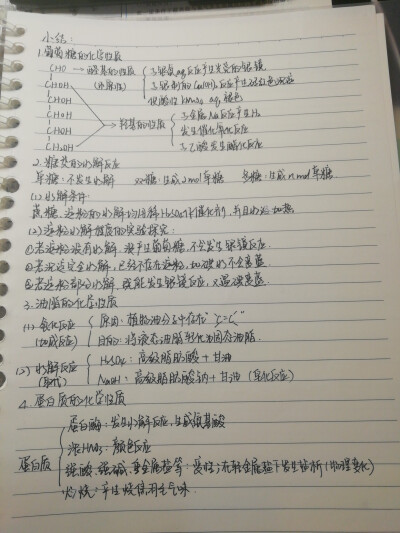 小结：
1.葡萄糖的化学性质
CHO → 醛基的性质 与银氨aq反应产生光亮的银镜
CHOH (还原性) 与新制的Cu(OH)₂反应产生砖红色沉淀
CHOH 使酸性KMnO₄ aq 褪色
CHOH 羟基的性质 与金属Na反应产生H₂
CHOH 发生催化氧化反应
CH₂OH 与乙酸发生酯化反应
2.糖类的水解反应
单糖：不发生水解 双糖：生成2mol单糖 多糖：生成n mol单糖
(1)水解条件
蔗糖、淀粉的水解均用稀H₂SO₄作催化剂，并且水浴加热
(2)淀粉水解程度的实验探究：
①若淀粉没有水解，没产生葡萄糖，不会发生银镜反应。
②若淀粉完全水解，已经不存在淀粉，加碘水不会变蓝。
③若淀粉部分水解，既能发生银镜反应，又遇碘变蓝。
3.油脂的化学性质
(1)氢化反应 原因：植物油分子中存在"C=C"
(加成反应) 目的：将液态油脂转化为固态油脂
(2)水解反应 H₂SO₄：高级脂肪酸+甘油
(取代) NaOH：高级脂肪酸钠+甘油（皂化反应）
4.蛋白质的化学性质
蛋白酶：发生水解反应，生成氨基酸
浓HNO₃：颜色反应
蛋白质 强酸、强碱、重金属盐等：变性；浓轻金属盐下发生盐析(物理变化)
灼烧：产生烧焦羽毛气味